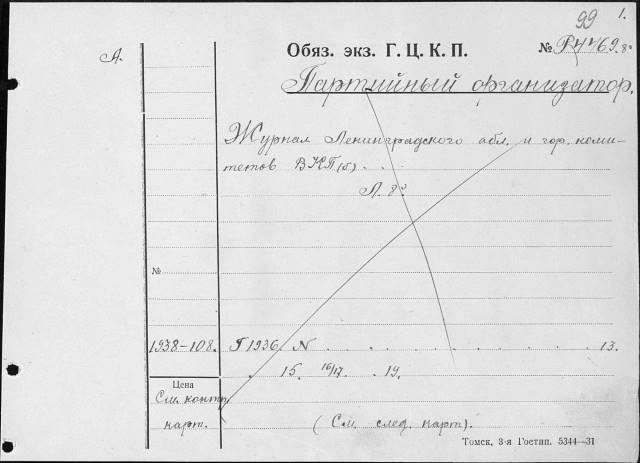 99 1.
А.
Обяз. экз. Г. Ц. К. П. № Р4769.8º
Партийный организатор.
Журнал Ленинградского обл. и гор. коми-
тетов ВКП(б) . .
Л. 8º
№
1938—108. Г 1936. N . . . . . . . . 13.
. 15. 16/17 . 19.
Цена
См. конт.
карт. (См. след. карт).
Томск, 3-я Гостип. 5344—31